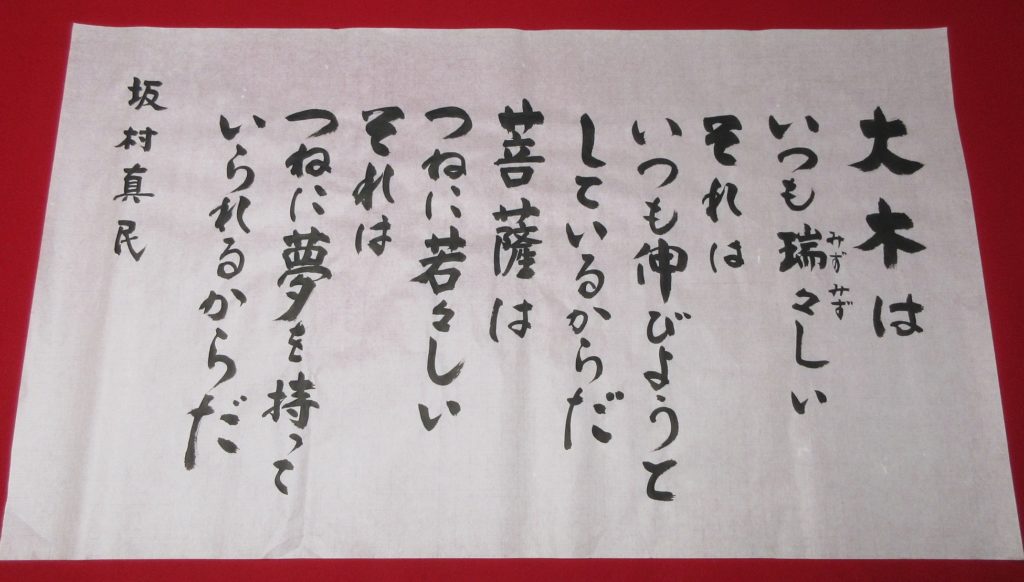 大木は
いつも瑞々しい
みずみず
それは
いつも伸びようと
しているからだ
菩薩は
つねに若々しい
それは
つねに夢を持って
いられるからだ
坂村真民